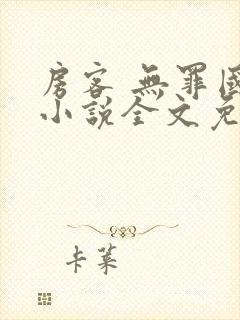 房客 無罪國
小說全文免
卡萊